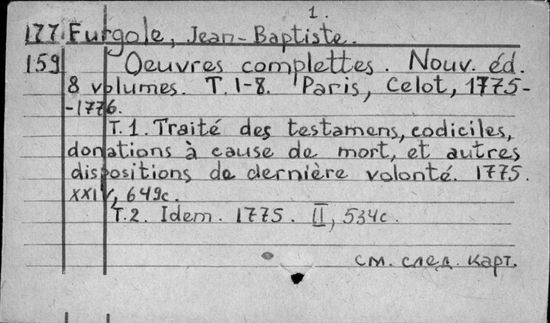 1.
177 Furgole, Jean-Baptiste.
159 Oeuvres complettes. Nouv. éd.
8 volumes. T. 1-8. Paris, Celot, 1775-
-1776.
T. 1. Traité des testamens, codiciles,
donations à cause de mort, et autres
dispositions de dernière volonté. 1775.
XXIV, 649c.
T. 2. Idem. 1775. II, 534c.
см. след. карт.